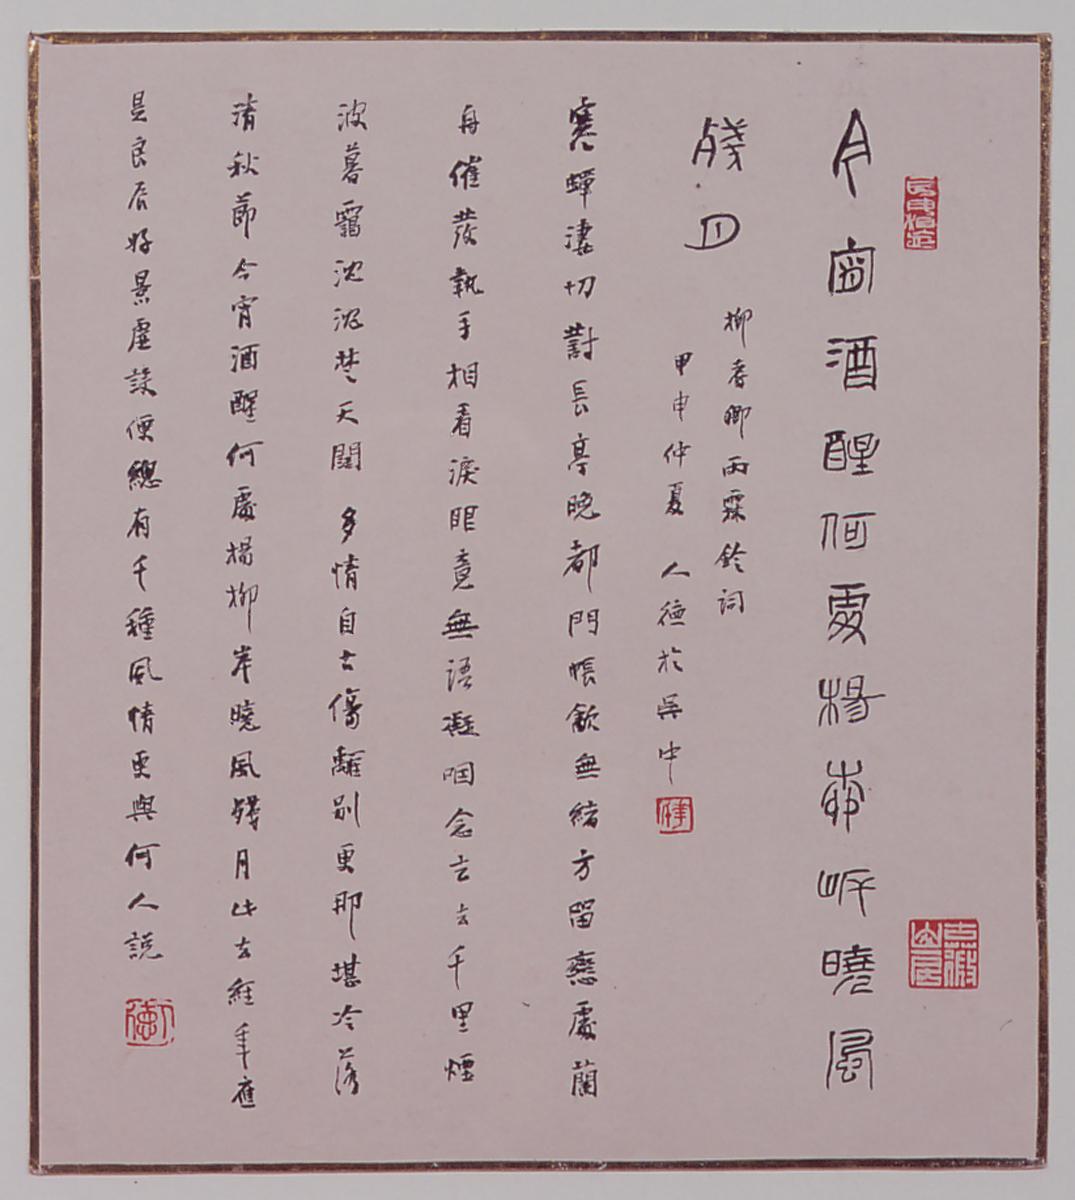 今宵酒醒何處楊柳岸曉風
殘月
柳耆卿雨霖鈴詞
甲申仲夏 人德於吳中
寒蟬淒切對長亭晚都門帳飲無緒方留戀處蘭
舟催發執手相看淚眼竟無語凝咽念去去千里煙
波暮靄沈沈楚天闊 多情自古傷離別更那堪冷落
清秋節今宵酒醒何處楊柳岸曉風殘月此去經年應
是良辰好景虛設便總有千種風情更與何人說
人德